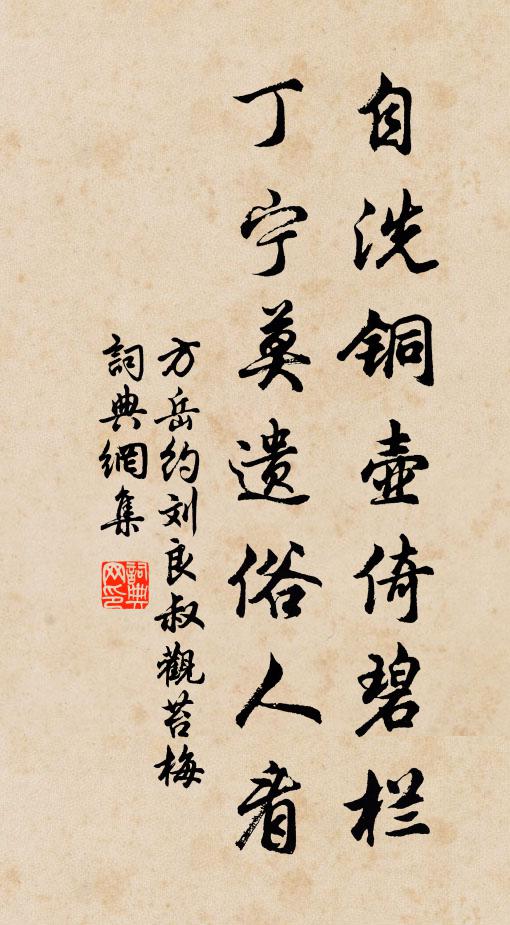 自洗铜壶倚碧栏
丁宁莫遗俗人看
方岳约刘良叔觀苔梅
詞典網集
詞典网印